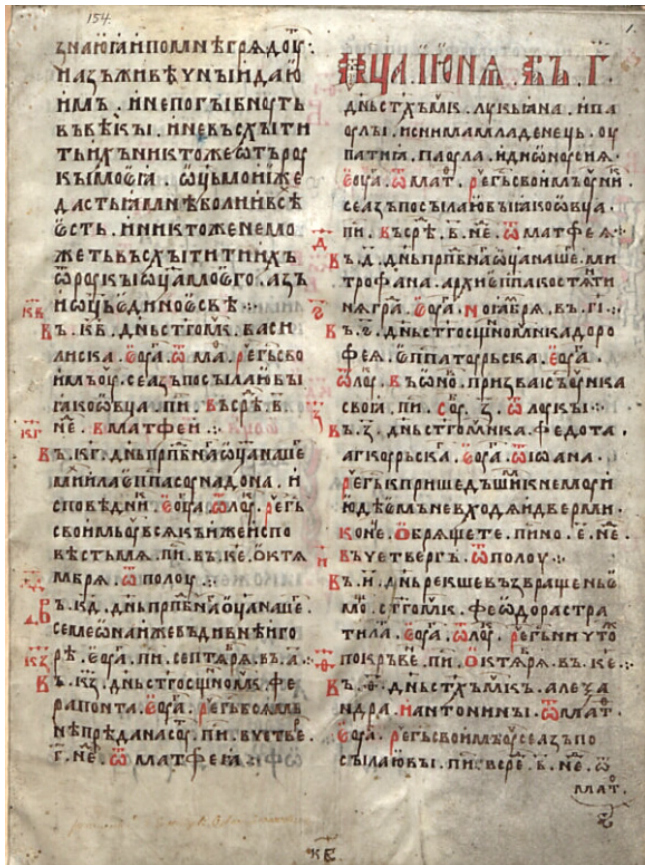 154.
1.
знаюгаипомнѣгрядоуⷮ
иазъживѣчныидаю
имъ . инепогыбноуть
въвѣкы . иневъсхыти
тьихъниктожеѿърꙋ
кымоѥꙗ . ѡц҃ьмоиѥже
дастьꙗмнѣболиивсѣ
ѥсть . иниктоженемо
жетьвъсхытитиихъ
ѿрꙋкыѡц҃амоѥго . азъ
иѡц҃ьѥдиноѥсвѣ ⁘
кв
Въ . кв . дн҃ьст҃гомⷱ҇к . васи
лиска . еѵⷢ҇а . ѿ ма . рⷱ҇егь҃сво
имъоуⷱ҇ . сеазъпосылаювы
ꙗкоѡвца . пи . въсрѣ . в .
нⷣе . ѿматфеи ⁘
кг
Въ . кг . дн҃ьпрпⷣбнⷢ҇аѡц҃анаше
михаилаеппⷭ҇асоунадона . и
сповѣднⷦ҇и . еѵⷢ҇а . ѿлоуⷦ҇ . рⷱ҇егь
своимъоуⷱ҇всякъижеиспо
вѣстьмя . пи . въ . ке . октя
мбря . ѿполоу ⁘
кд
Въ . кд . дн҃ьпрпⷣбнⷢ҇аѡц҃анаше .
семеѡнаижевъдивнѣиго
рѣ . еѵⷢ҇а . пи . септября . въ . а ⁘
кз
Въ . кз . дн҃ьст҃госщ҃номⷱ҇к . фе
рапонта . еѵⷢ҇а . рⷱ҇егьвоямъ
нѣпрѣданасоуⷮ . пи . вчетве .
г . нⷣе . ѿ матфеꙗ ⁘
мⷭ҇ца . июня . въ . г҃
дн҃ьст҃хъмⷱ҇к . лукыана . ипа
оулы . иснимамладенець . оу
патиꙗ . паоула . идиѡноусия .
еѵⷢ҇а . ѿ маⷮ . рⷱ҇егь҃своимъоучнⷦ҇и .
сеазъпосылаювыꙗкоѡвца .
пи . въсрѣ . в . нⷣе . ѿ матфея ⁘
д
Въ . д . дн҃ьпрпⷣбнⷢ҇аѡц҃анаше . ми
трофана . архиеппⷭ҇акостянти
няграⷣ . еѵⷢ҇а . ноября . въ . гі .
Въ . ѕ . дн҃ьст҃госщ҃номⷱ҇никадоро
фея . еппⷭ҇атоурьска . еѵⷢ҇а .
ѿлоуⷦ҇ . въѡно . призваіс҃оучника
своꙗ . пи . соуⷠ . з . ѿ лоукы ⁘
з
Въ . з . дн҃ьст҃гомⷱ҇ника . федота .
агкоурьска . еѵⷢ҇а . ѿіѡана .
рⷱ҇егькпришедъшимкнемоуи
юдѣомъневходяидверми .
коне . обрящете . пино . е . нⷣе .
и
въчетвергъ . ѿполоу ⁘
Въ . и . дн҃ьрекшевъзвращеньѥ
мо . ст҃гомⷱ҇к . феѡдорастра
тила . еѵⷢ҇а . ѿлоуⷦ҇ . рⷱ҇егьничто
ѳ
покръве . пи . октября . въ . ке ⁘
Въ . ѳ . дн҃ьст҃хъмⷱ҇къ . алеѯа
ндра . иантонины . ѿ маⷮ .
еѵⷢ҇а . рⷱ҇егьсвоимъоуⷱ҇сеазъпо
сылаювы . пи . всре . в . нⷣе . ѿ
маⷮ .
кв